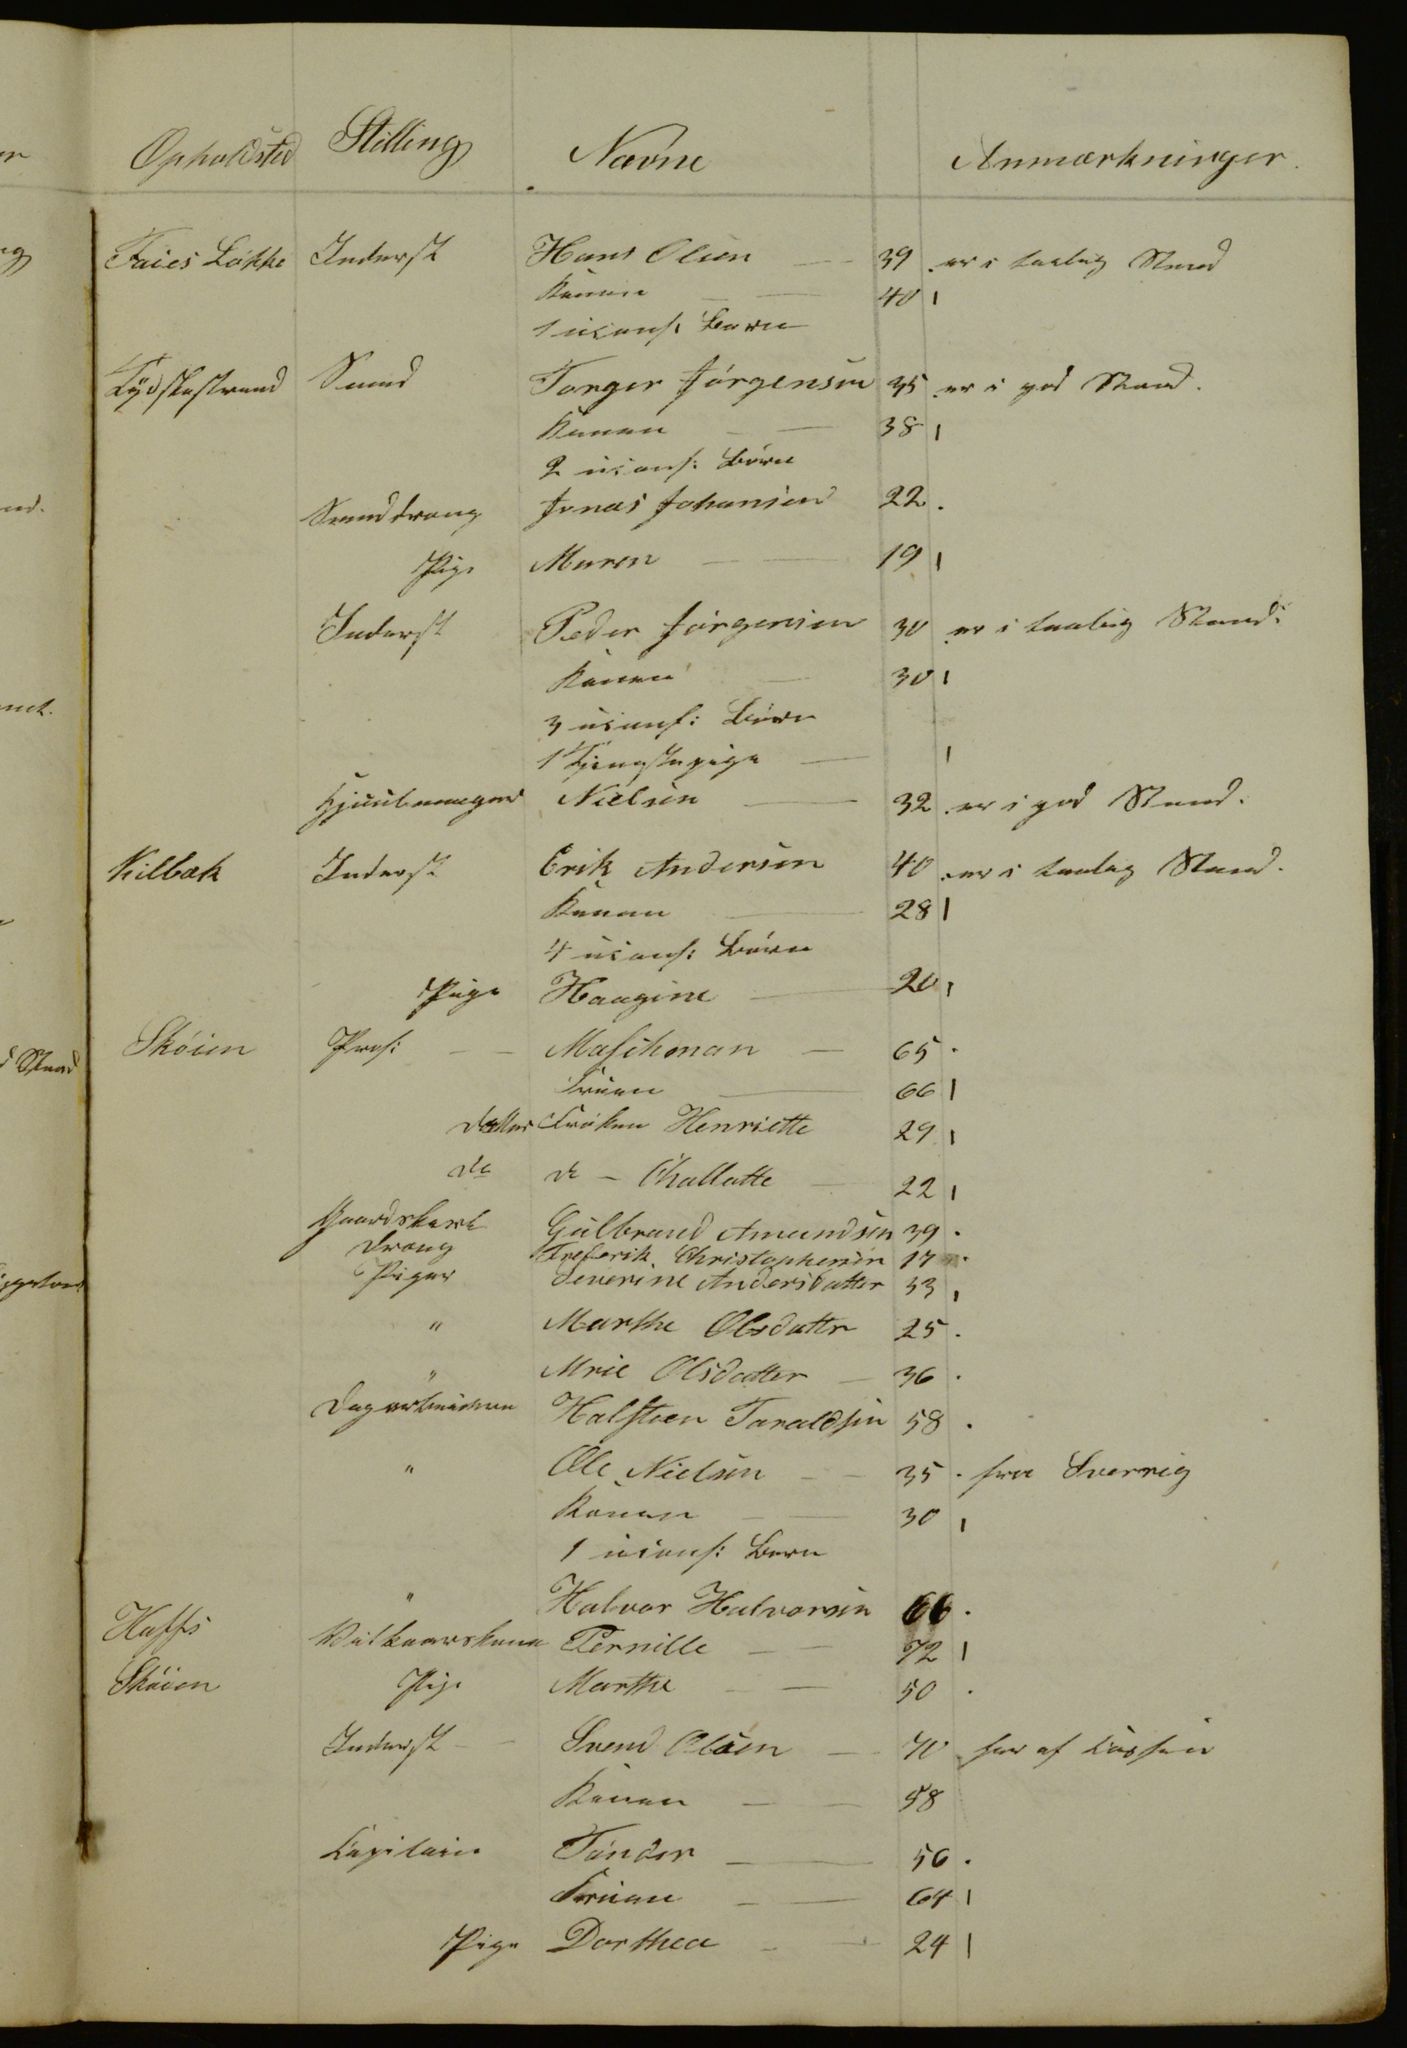 Opholdsted Stilling Navne Anmærkninger.
Faies Løkke Inderst Hans Olsen — 39 er i taalig Stand
Konen — — 40 ı
1 uconf: Barn
Tydskestrand Smed Torger Jørgensen 35 er i god Stand.
Konen — — 38 ı
2 uconf: Børn
Smeddreng Jonas Johansen 22 .
Pige Maren — — 19 ı
Inderst Peder Jørgensen 30 er i taalig Stand.
Konen — 30 ı
3 uconf: Børn
1 Tjenestepige — ı
Hjuulmager Nielsen — 32 er i god Stand.
Killbak Inderst Erik Andersen 40 er i taalig Stand.
Konen — 28 ı
4 uconf: Børn
Pige Haagine — 20 ı
Skøien Prof: — — Maschman — 65 .
Fruen — 66 ı
Datter Frøken Henriette 29 ı
do do — Challatte — 22 ı
Gaardskarl Gulbrand Amundsen 39 .
Dreng Frederik Christophersen 17 .
Piger Severine Andersdatter 33 ı
" Marthe Olsdattr 25 .
" Mrie Olsdatter — 36 .
Dagarbeidere Halsteen Taraldsen 58 .
" Ole Nielsen — — 35 . fra Sverrig
Konen — — 30 ı
1 uconf: Barn
" Halvor Halvorsen 66 .
Haffs Vilkaarskone Pernille — — 72 ı
Skøien Pige Marthe — — 50 .
Inderst — — Svend Olsen — 70 har af Cassen
Konen — — 58
Capitain Tønder — — 56 .
Fruen — — 64 ı
Pige Dorthea — — 24 ı